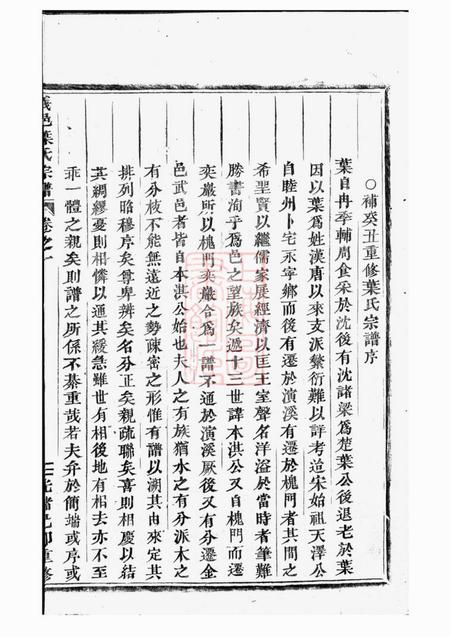 ○補癸丑重修葉氏宗譜序
葉自冉季輔周食采於沈後有沈諸梁為楚葉公後退老於葉
因以葉為姓漢唐以來支派繁衍難以詳考迨宋始祖天澤公
自睦州卜宅永寧鄉而後有遷於演溪有遷於槐門者其間之
希聖賢以繼儒家展經濟以匡王室聲名洋溢於當時者筆難
勝書洵乎為邑之望族矣過十三世諱本淇公又自槐門而遷
奕巖所以槐門奕巖合為一譜不通於演溪厥後又有分遷金
邑武邑者皆自本淇公始也夫人之有族猶水之有分派木之
有分枝不能無遠近之勢疎密之形惟有譜以溯其由來定其
排列昭穆序矣尊卑辨矣名分正矣親疏聯矣喜則相慶以結
其綢繆憂則相憐以通其緩急雖世有相後地有相去亦不至
乖一體之親矣則譜之所係不綦重哉若夫弁於簡端或序或
義邑葉氏宗譜 卷之一
光緒己卯重修